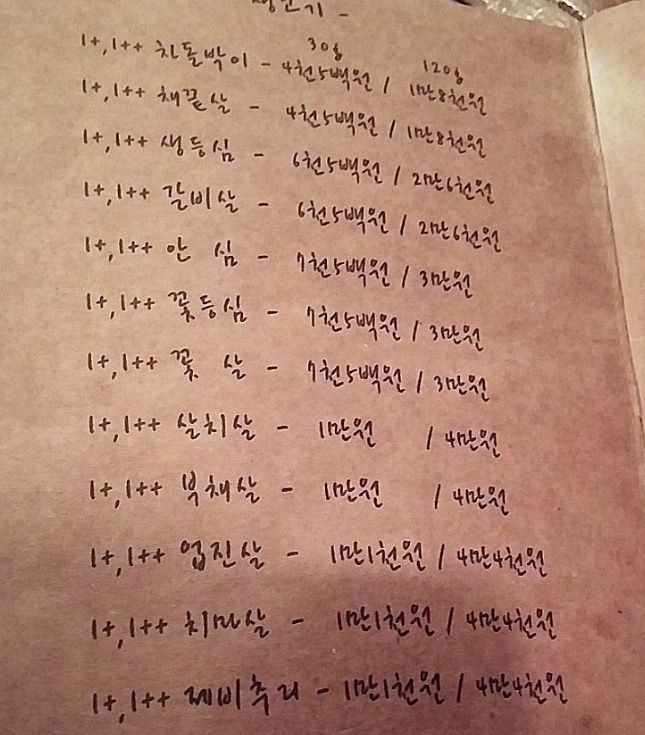 30g 120g
1+,1++ 차돌박이 - 4천5백원 / 1만8천원
1+,1++ 채끝살 - 4천5백원 / 1만8천원
1+,1++ 생등심 - 6천5백원 / 2만6천원
1+,1++ 갈비살 - 6천5백원 / 2만6천원
1+,1++ 안 심 - 7천5백원 / 3만원
1+,1++ 꽃등심 - 7천5백원 / 3만원
1+,1++ 꽃 살 - 7천5백원 / 3만원
1+,1++ 살치살 - 1만원 / 4만원
1+,1++ 부채살 - 1만원 / 4만원
1+,1++ 업진살 - 1만1천원 / 4만4천원
1+,1++ 치마살 - 1만1천원 / 4만4천원
1+,1++ 제비추리 - 1만1천원 / 4만4천원